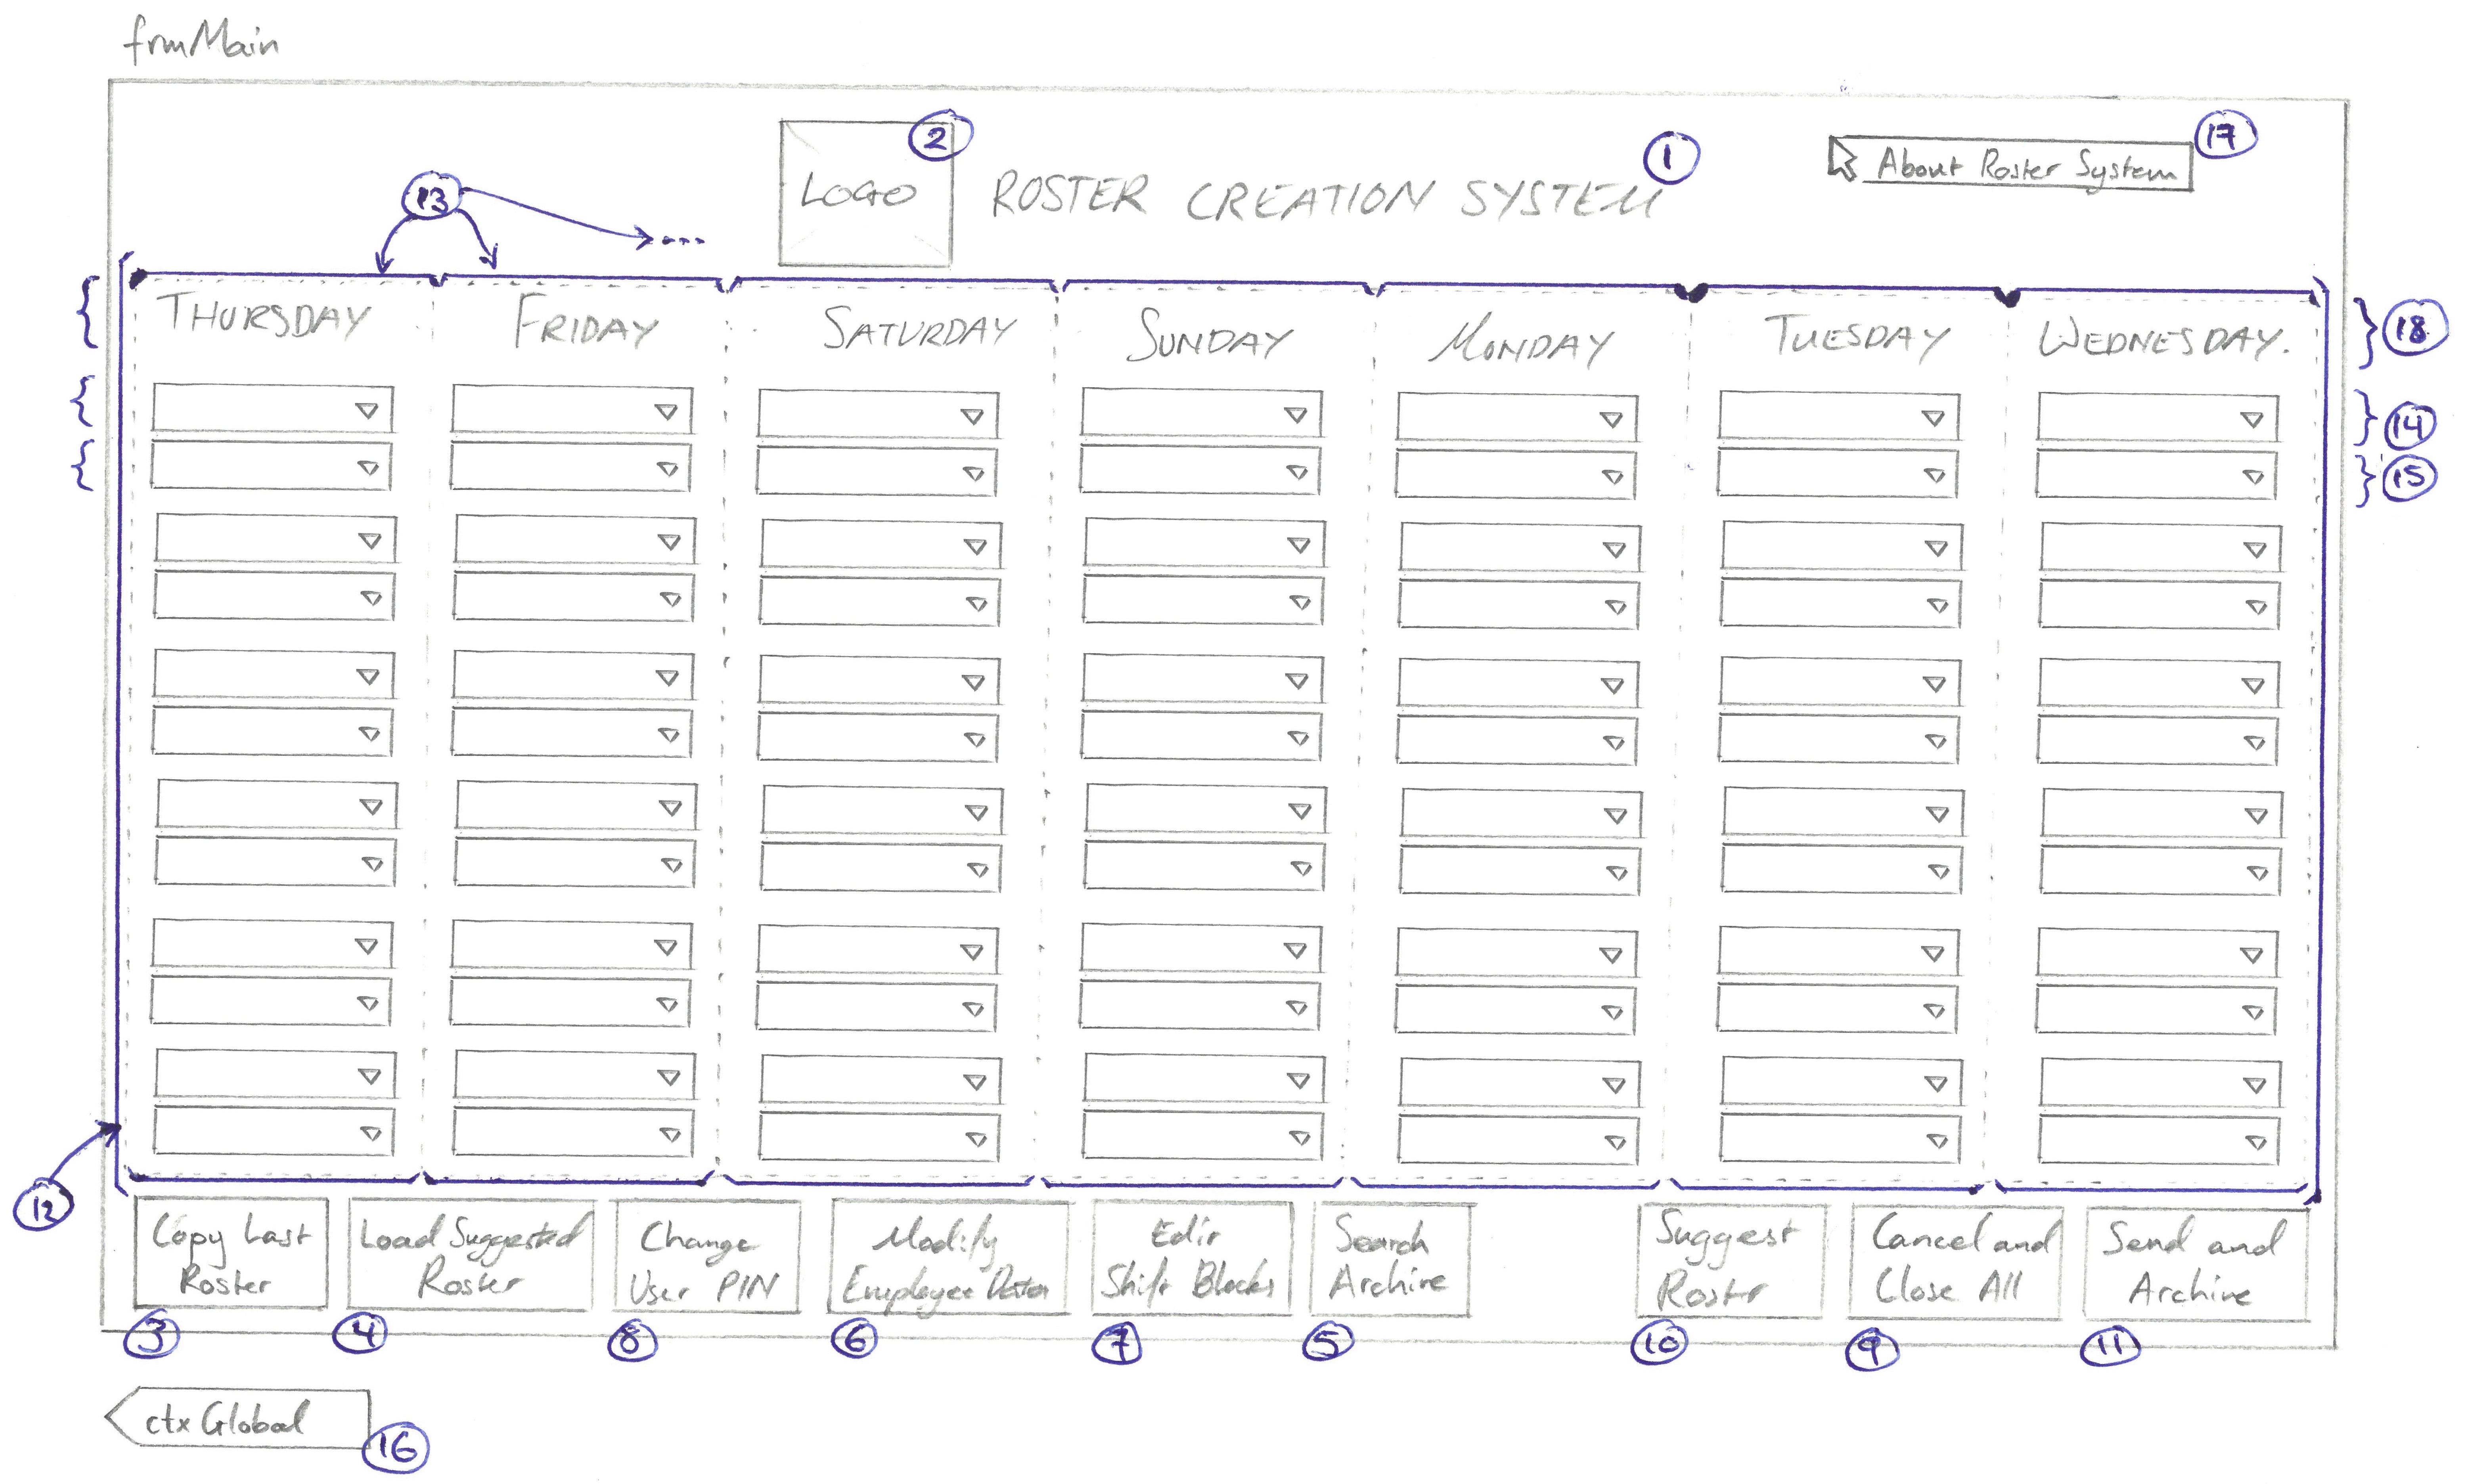 frmMain
2
17
1
13
LOGO
ROSTER CREATION SYSTEM
About Roster System
THURSDAY
FRIDAY
SATURDAY
SUNDAY
MONDAY
TUESDAY
WEDNESDAY.
18
14
15
12
Copy Last
Roster
Load Suggested
Roster
Change
User PIN
Modify
Employee Data
Edit
Shift Blocks
Search
Archive
Suggest
Roster
Cancel and
Close All
Send and
Archive
3
4
8
6
7
5
10
9
11
ctxGlobal
16